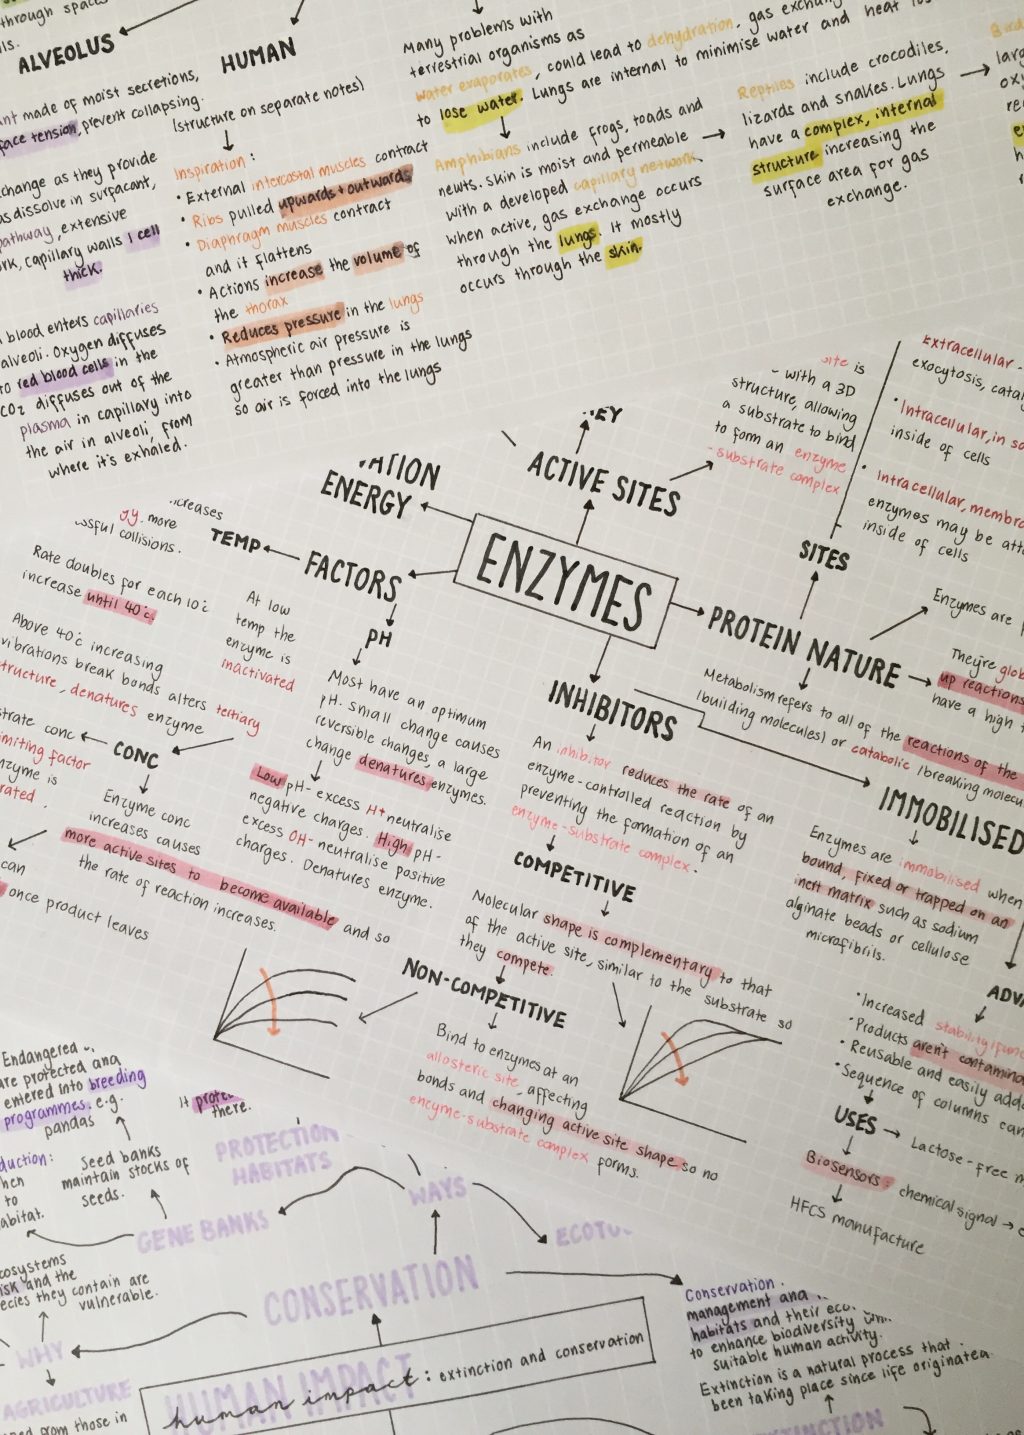 through spac
lls.
ALVEOLUS
ant made of moist secretions,
face tension, prevent collapsing.
change as they provide
as dissolve in surfacant,
pathway, extensive
rk, capillary walls 1 cell
thick.
blood enters capillaries
alveoli. Oxygen diffuses
to red blood cells in the
CO2 diffuses out of the
plasma in capillary into
the air in alveoli, from
where it's exhaled.
HUMAN
(structure on separate notes)
Inspiration:
• External intercostal muscles contract
• Ribs pulled upwards + outwards
• Diaphragm muscles contract
and it flattens
• Actions increase the volume of
the thorax
• Reduces pressure in the lungs
• Atmospheric air pressure is
greater than pressure in the lungs
so air is forced into the lungs
Many problems with
terrestrial organisms as
water evaporates, could lead to dehydration. gas exchang
to lose water. Lungs are internal to minimise water and heat los
Amphibians include frogs, toads and
newts. Skin is moist and permeable
with a developed capillary network.
when active, gas exchange occurs
through the lungs. It mostly
occurs through the skin.
Reptiles include crocodiles,
lizards and snakes. Lungs
have a complex, internal
structure increasing the
surface area for gas
exchange.
Bird
larg
oxy
ENZYMES
ACTIVE SITES
EY
site is
with a 3D
structure, allowing
a substrate to bind
to form an enzyme
-substrate complex
ATION
ENERGY
FACTORS
TEMP
creases
gy. more
ssful collisions.
Rate doubles for each 10°c
increase until 40°c.
Above 40°c increasing
vibrations break bonds alters tertiary
structure, denatures enzyme
At low
temp the
enzyme is
inactivated
PH
Most have an optimum
pH. small change causes
reversible changes, a large
change denatures enzymes.
Low pH- excess H+ neutralise
negative charges. High pH-
excess OH- neutralise positive
charges. Denatures enzyme.
CONC
strate conc
imiting factor
nzyme is
rated.
Enzyme conc
increases causes
more active sites to become available and so
the rate of reaction increases.
can
once product leaves
PROTEIN NATURE
SITES
Extracellular -
exocytosis, catal
• Intracellular, in so
inside of cells
• Intracellular, membra
enzymes may be att
inside of cells
Enzymes are p
They're glob
up reactions
have a high t
Metabolism refers to all of the reactions of the
(building molecules) or catabolic (breaking molecu
INHIBITORS
An inhibitor reduces the rate of an
enzyme-controlled reaction by
preventing the formation of an
enzyme-substrate complex.
COMPETITIVE
Molecular shape is complementary to that
of the active site, similar to the substrate so
they compete.
NON-COMPETITIVE
Bind to enzymes at an
allosteric site, affecting
bonds and changing active site shape so no
enzyme-substrate complex forms.
IMMOBILISED
Enzymes are immobilised when
bound, fixed or trapped on an
inert matrix such as sodium
alginate beads or cellulose
microfibrils.
ADVA
• Increased stability/func
• Products aren't contamina
• Reusable and easily adde
• Sequence of columns can
USES
Lactose-free m
Biosensors: chemical signal → e
HFCS manufacture
Endangered
are protected and
entered into breeding
programmes. e.g.
pandas
It protec
there.
PROTECTION
HABITATS
Seed banks
maintain stocks of
seeds.
duction:
hen
to
abitat.
GENE BANKS
WAYS
ECOTU
cosystems
risk and the
ecies they contain are
vulnerable.
CONSERVATION
WHY
AGRICULTURE
ned from those in
HUMAN IMPACT
human impact: extinction and conservation
Conservation
management and
habitats and their eco
to enhance biodiversity
suitable human activity.
Extinction is a natural process that
been taking place since life originated
EXTINCTION